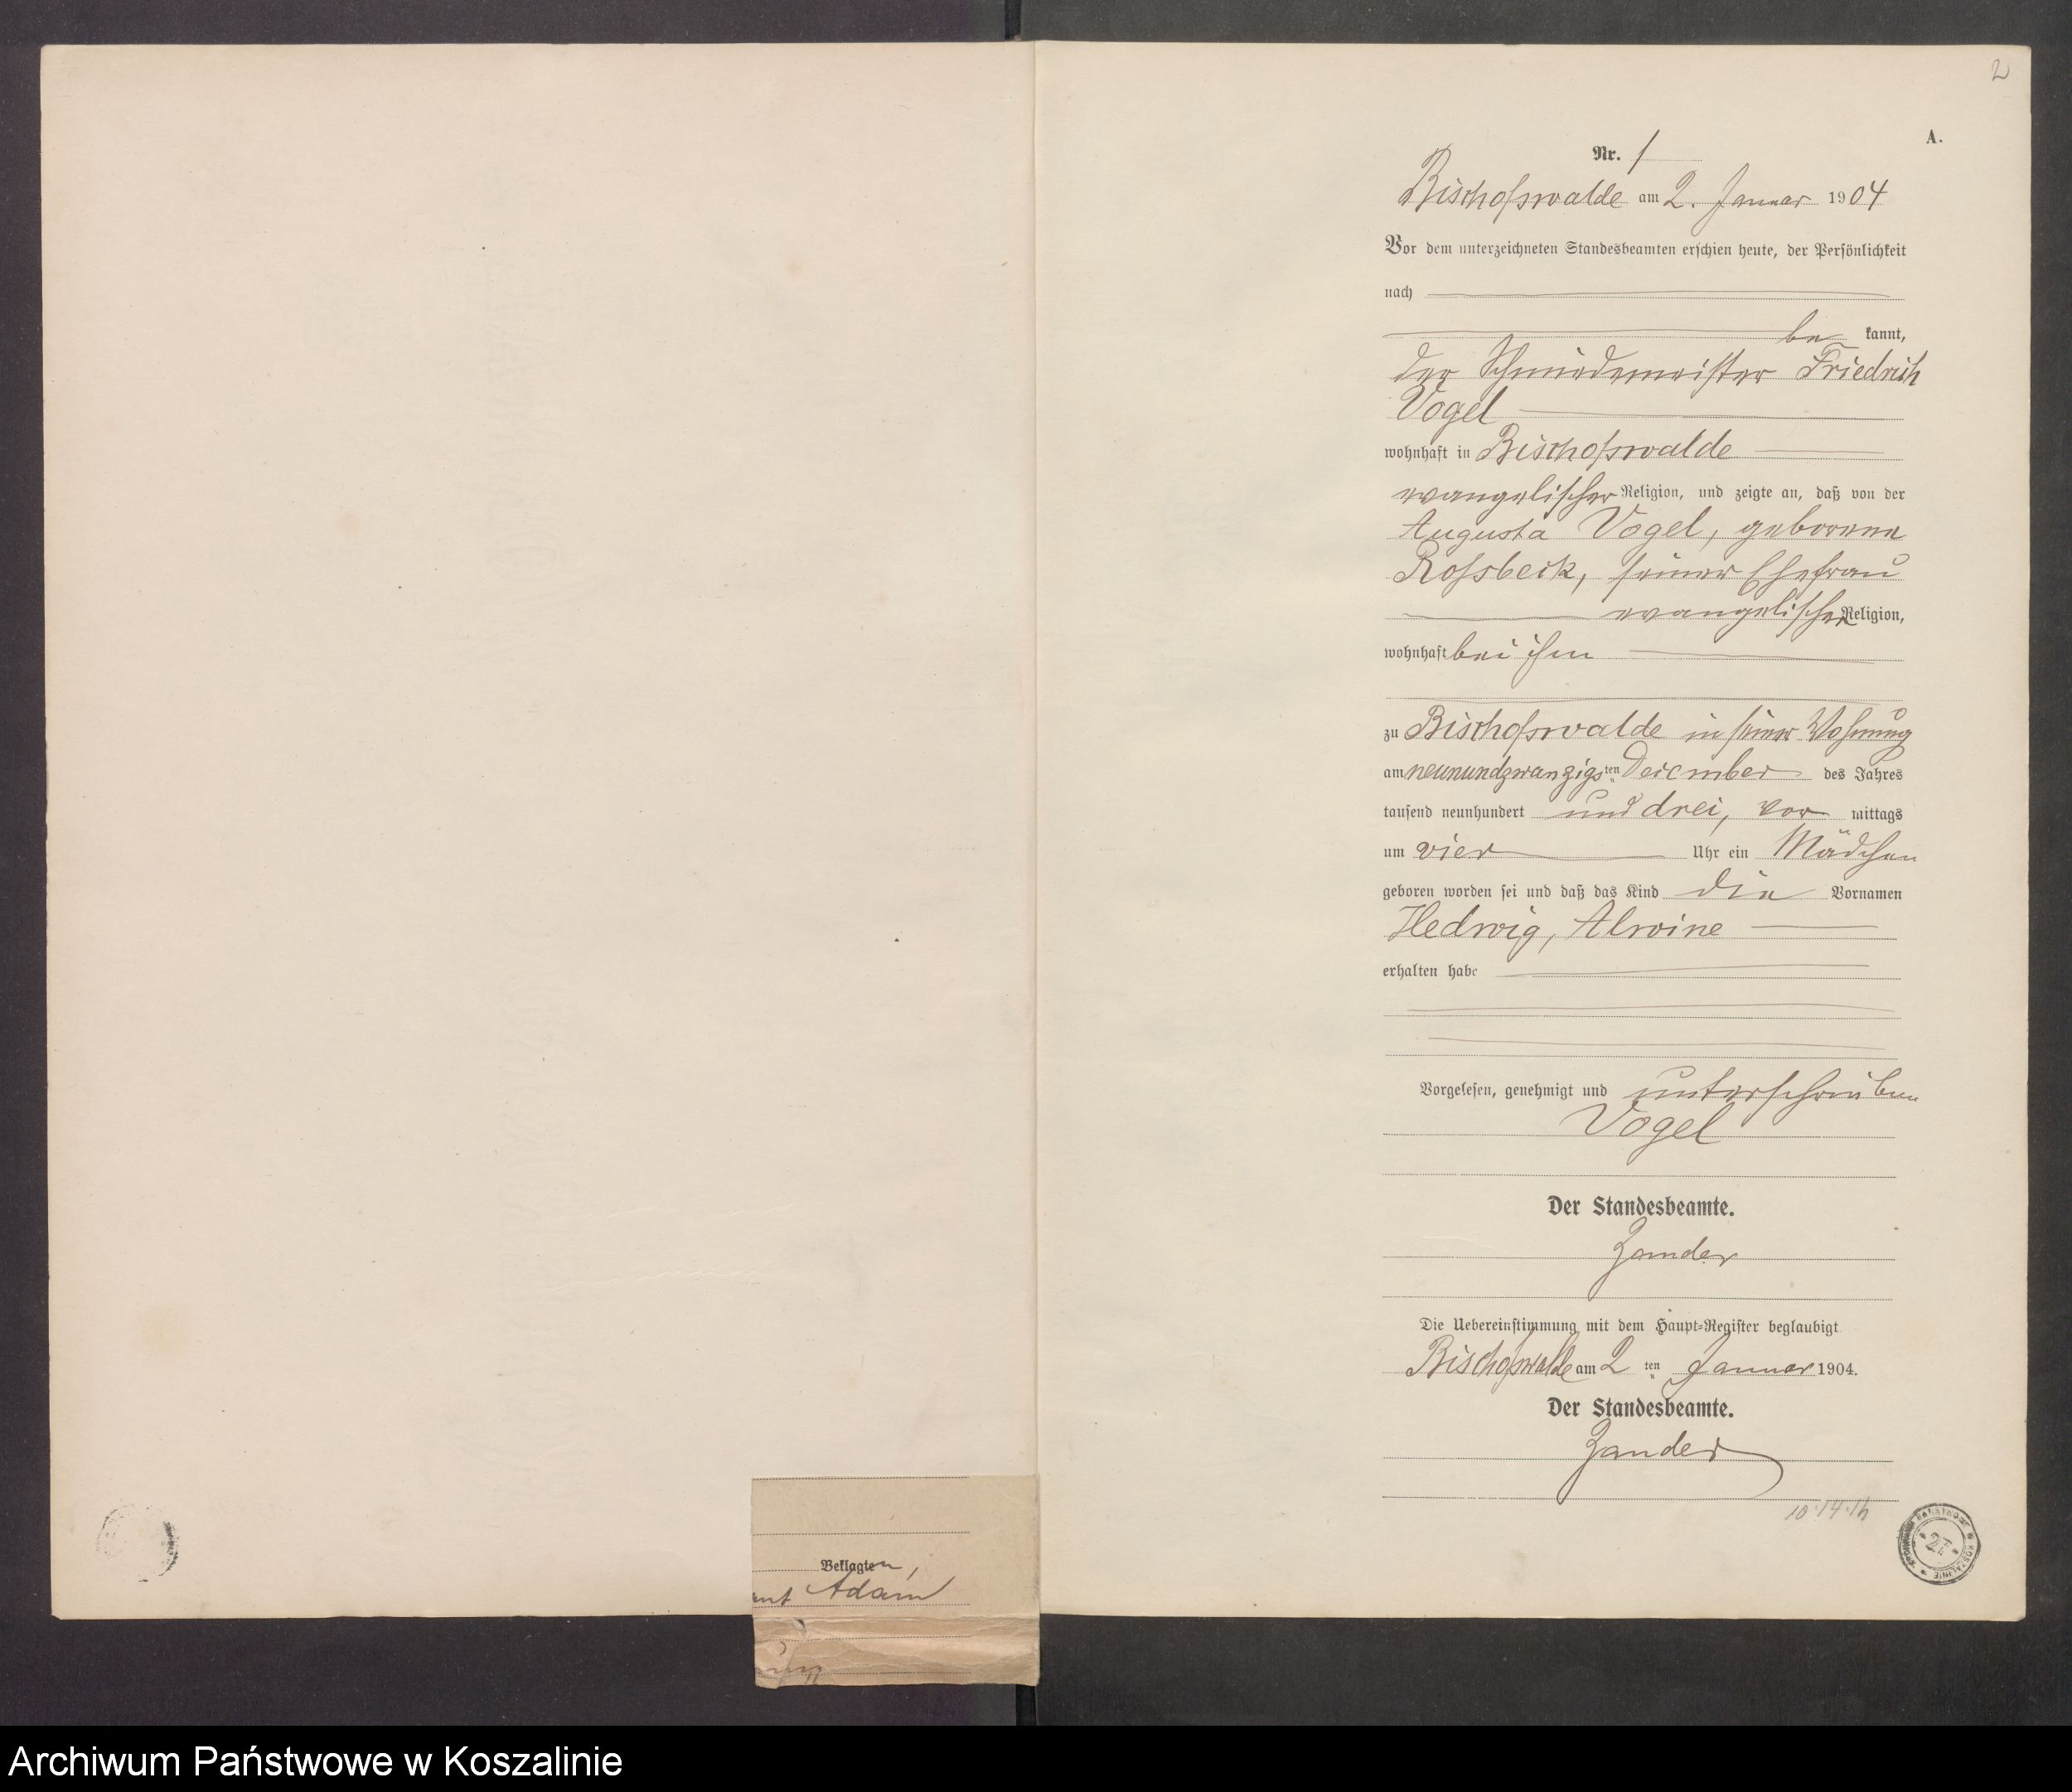 2
A.
Nr. 1
Bischofswalde am 2. Januar 1904
Vor dem unterzeichneten Standesbeamten erschien heute, der Persönlichkeit
nach
be kannt,
der Schmiedemeister Friedrich
Vogel
wohnhaft in Bischofswalde
evangelischer Religion, und zeigte an, daß von der
Augusta Vogel, geborene
Rossbeck, seiner Ehefrau
evangelischer Religion,
wohnhaft bei ihm
zu Bischofswalde in seiner Wohnung
am neunundzwanzigsten December des Jahres
tausend neunhundert und drei, vor mittags
um vier Uhr ein Mädchen
geboren worden sei und daß das Kind die Vornamen
Hedwig, Alwine
erhalten habe
Vorgelesen, genehmigt und unterschrieben
Vogel
Der Standesbeamte.
Zander
Die Uebereinstimmung mit dem Haupt-Register beglaubigt
Bischofswalde am 2 ten Januar 1904.
Der Standesbeamte.
Zander
Beklagten,
Adam
Archiwum Państwowe w Koszalinie